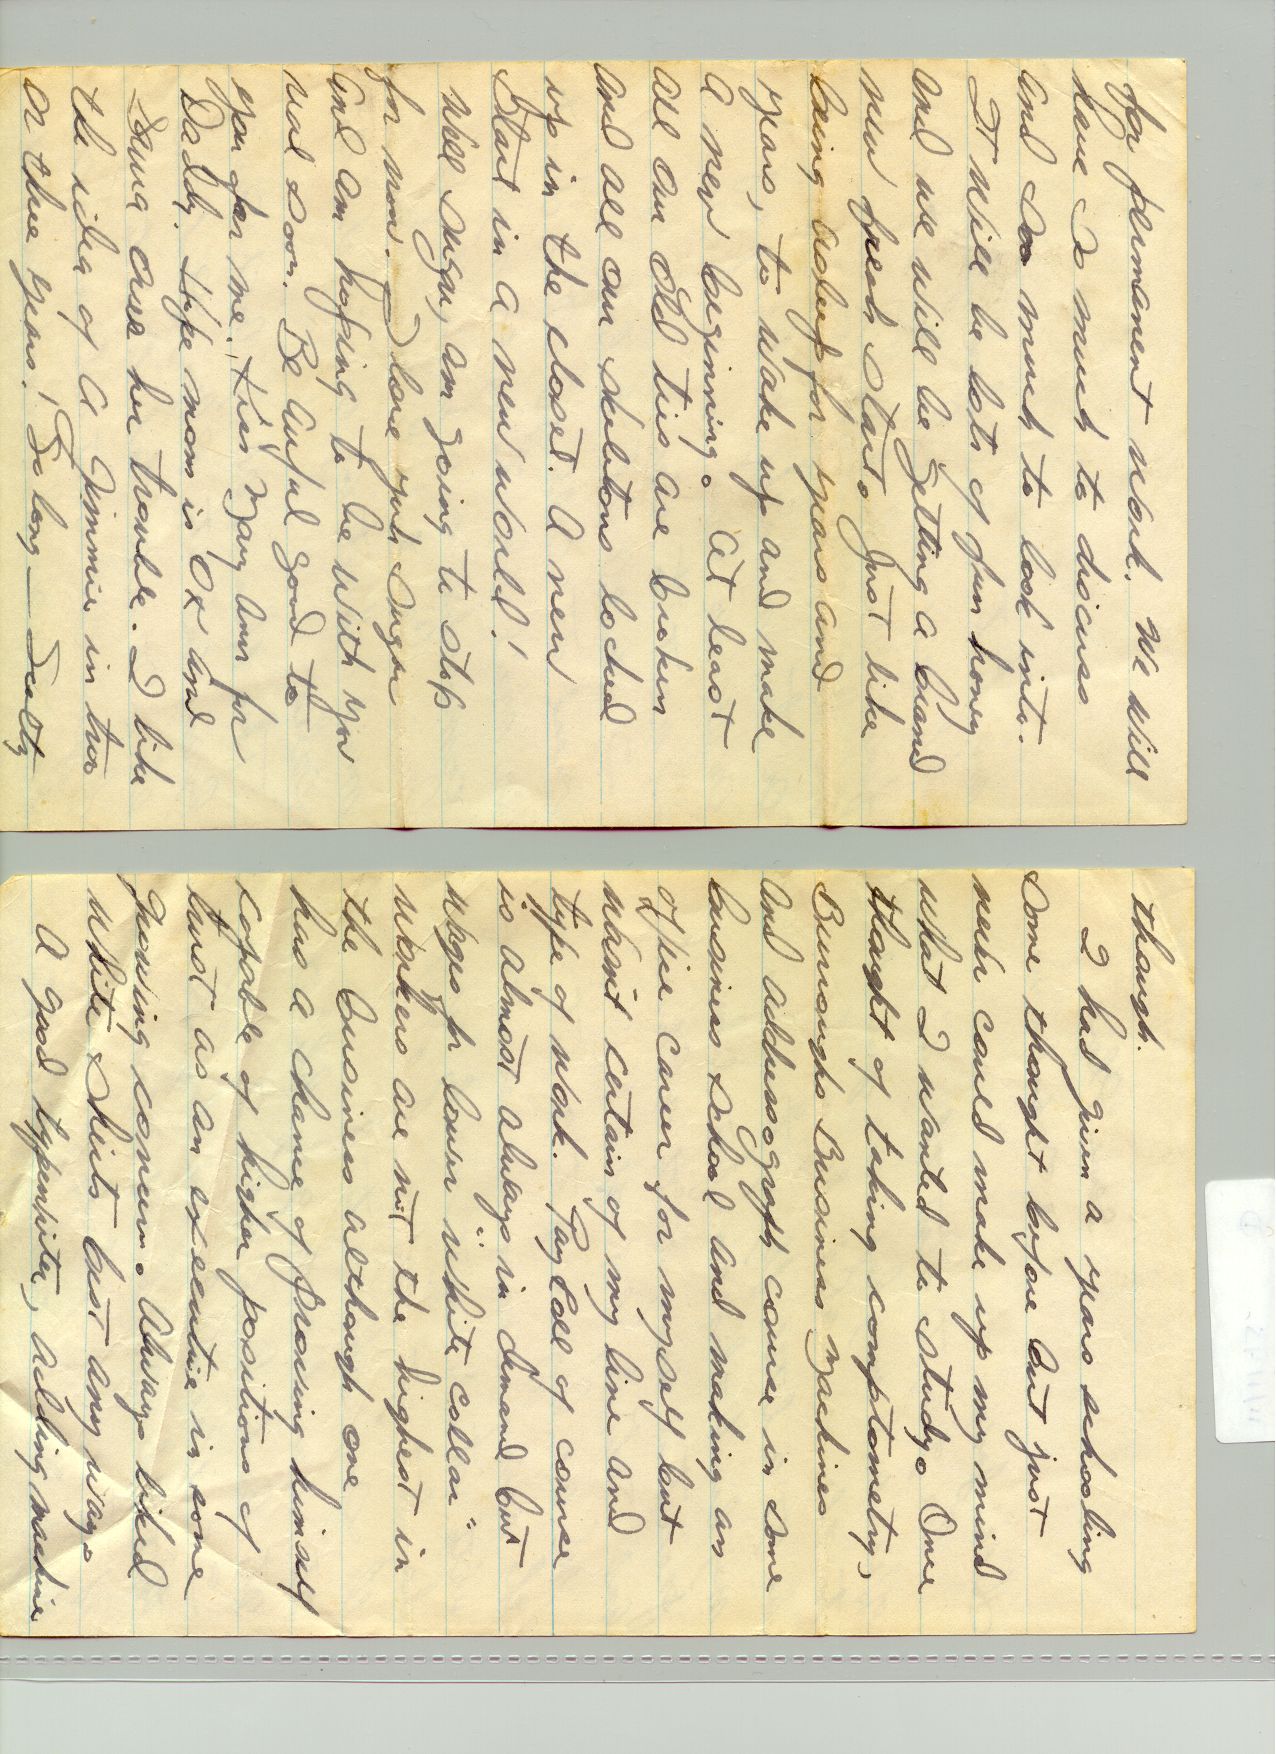 for permanent work. We will
have so much to discuss
and soo much to look into.
It will be lots of fun honey
and we will be getting a brand
new fresh start. Just like
being asleep for years and
years, to wake up and make
a new beginning. At least
all our old ties are broken
and all our skeletons locked
up in the closet. A new
Start in a new world!
Well Sugar, am going to stop
for now. I love you Sugar
and am hoping to be with you
real soon. Be awful good to
you for me. Kiss Mary Ann for
Daddy. Hope mom is OK and
Leona ease her trouble. I like
the idea of a Jimmie in two
or three years! So long — Scotty
though.
I had given a years schooling
some thought before but just
never could make up my mind
what I wanted to study. Once
thought of taking comptometry,
Burroughs Business Machines
and addressograph course in some
business school and making an
office career for myself but
wasn't certain of my line and
type of work. Payroll of course
is almost always in demand but
wages for lower "white collar"
workers are not the highest in
the business although one
has a chance of proving himself
capable of higher positions of
trust as an executive in some
growing concern. Always liked
white shirts best any way.
A good typewriter, adding machine